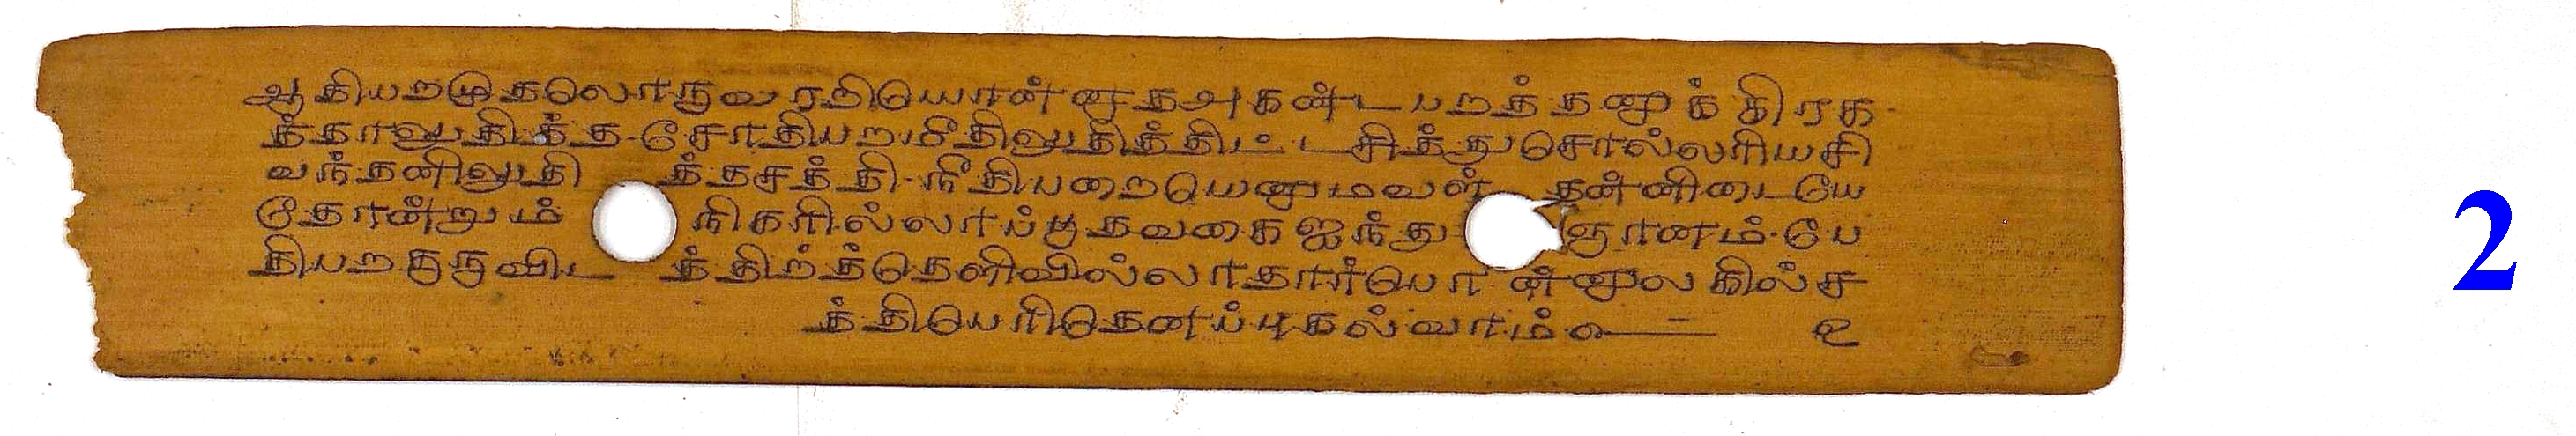 ஆதியறமுதலொருவரறியொன்னாதஅகன்டபறத்தனுக்கிரக
த்தாலுதித்த-சோதியறமீதிலுதித்திட்டசித்துசொல்லரியசி
வந்தனிலுதி த்தசத்தி-நீதியறையெனுமவள் தன்னிடையே
தோன்றும் நிகரில்லாய்பூதவகை ஐந்து ஞானம்-பே
தியறகுருவிட த்திற்த்தெளிவில்லாதார்பொ ன்னுலகில்ச
த்தியெரிதெனப்புகல்வாம் ௨
2